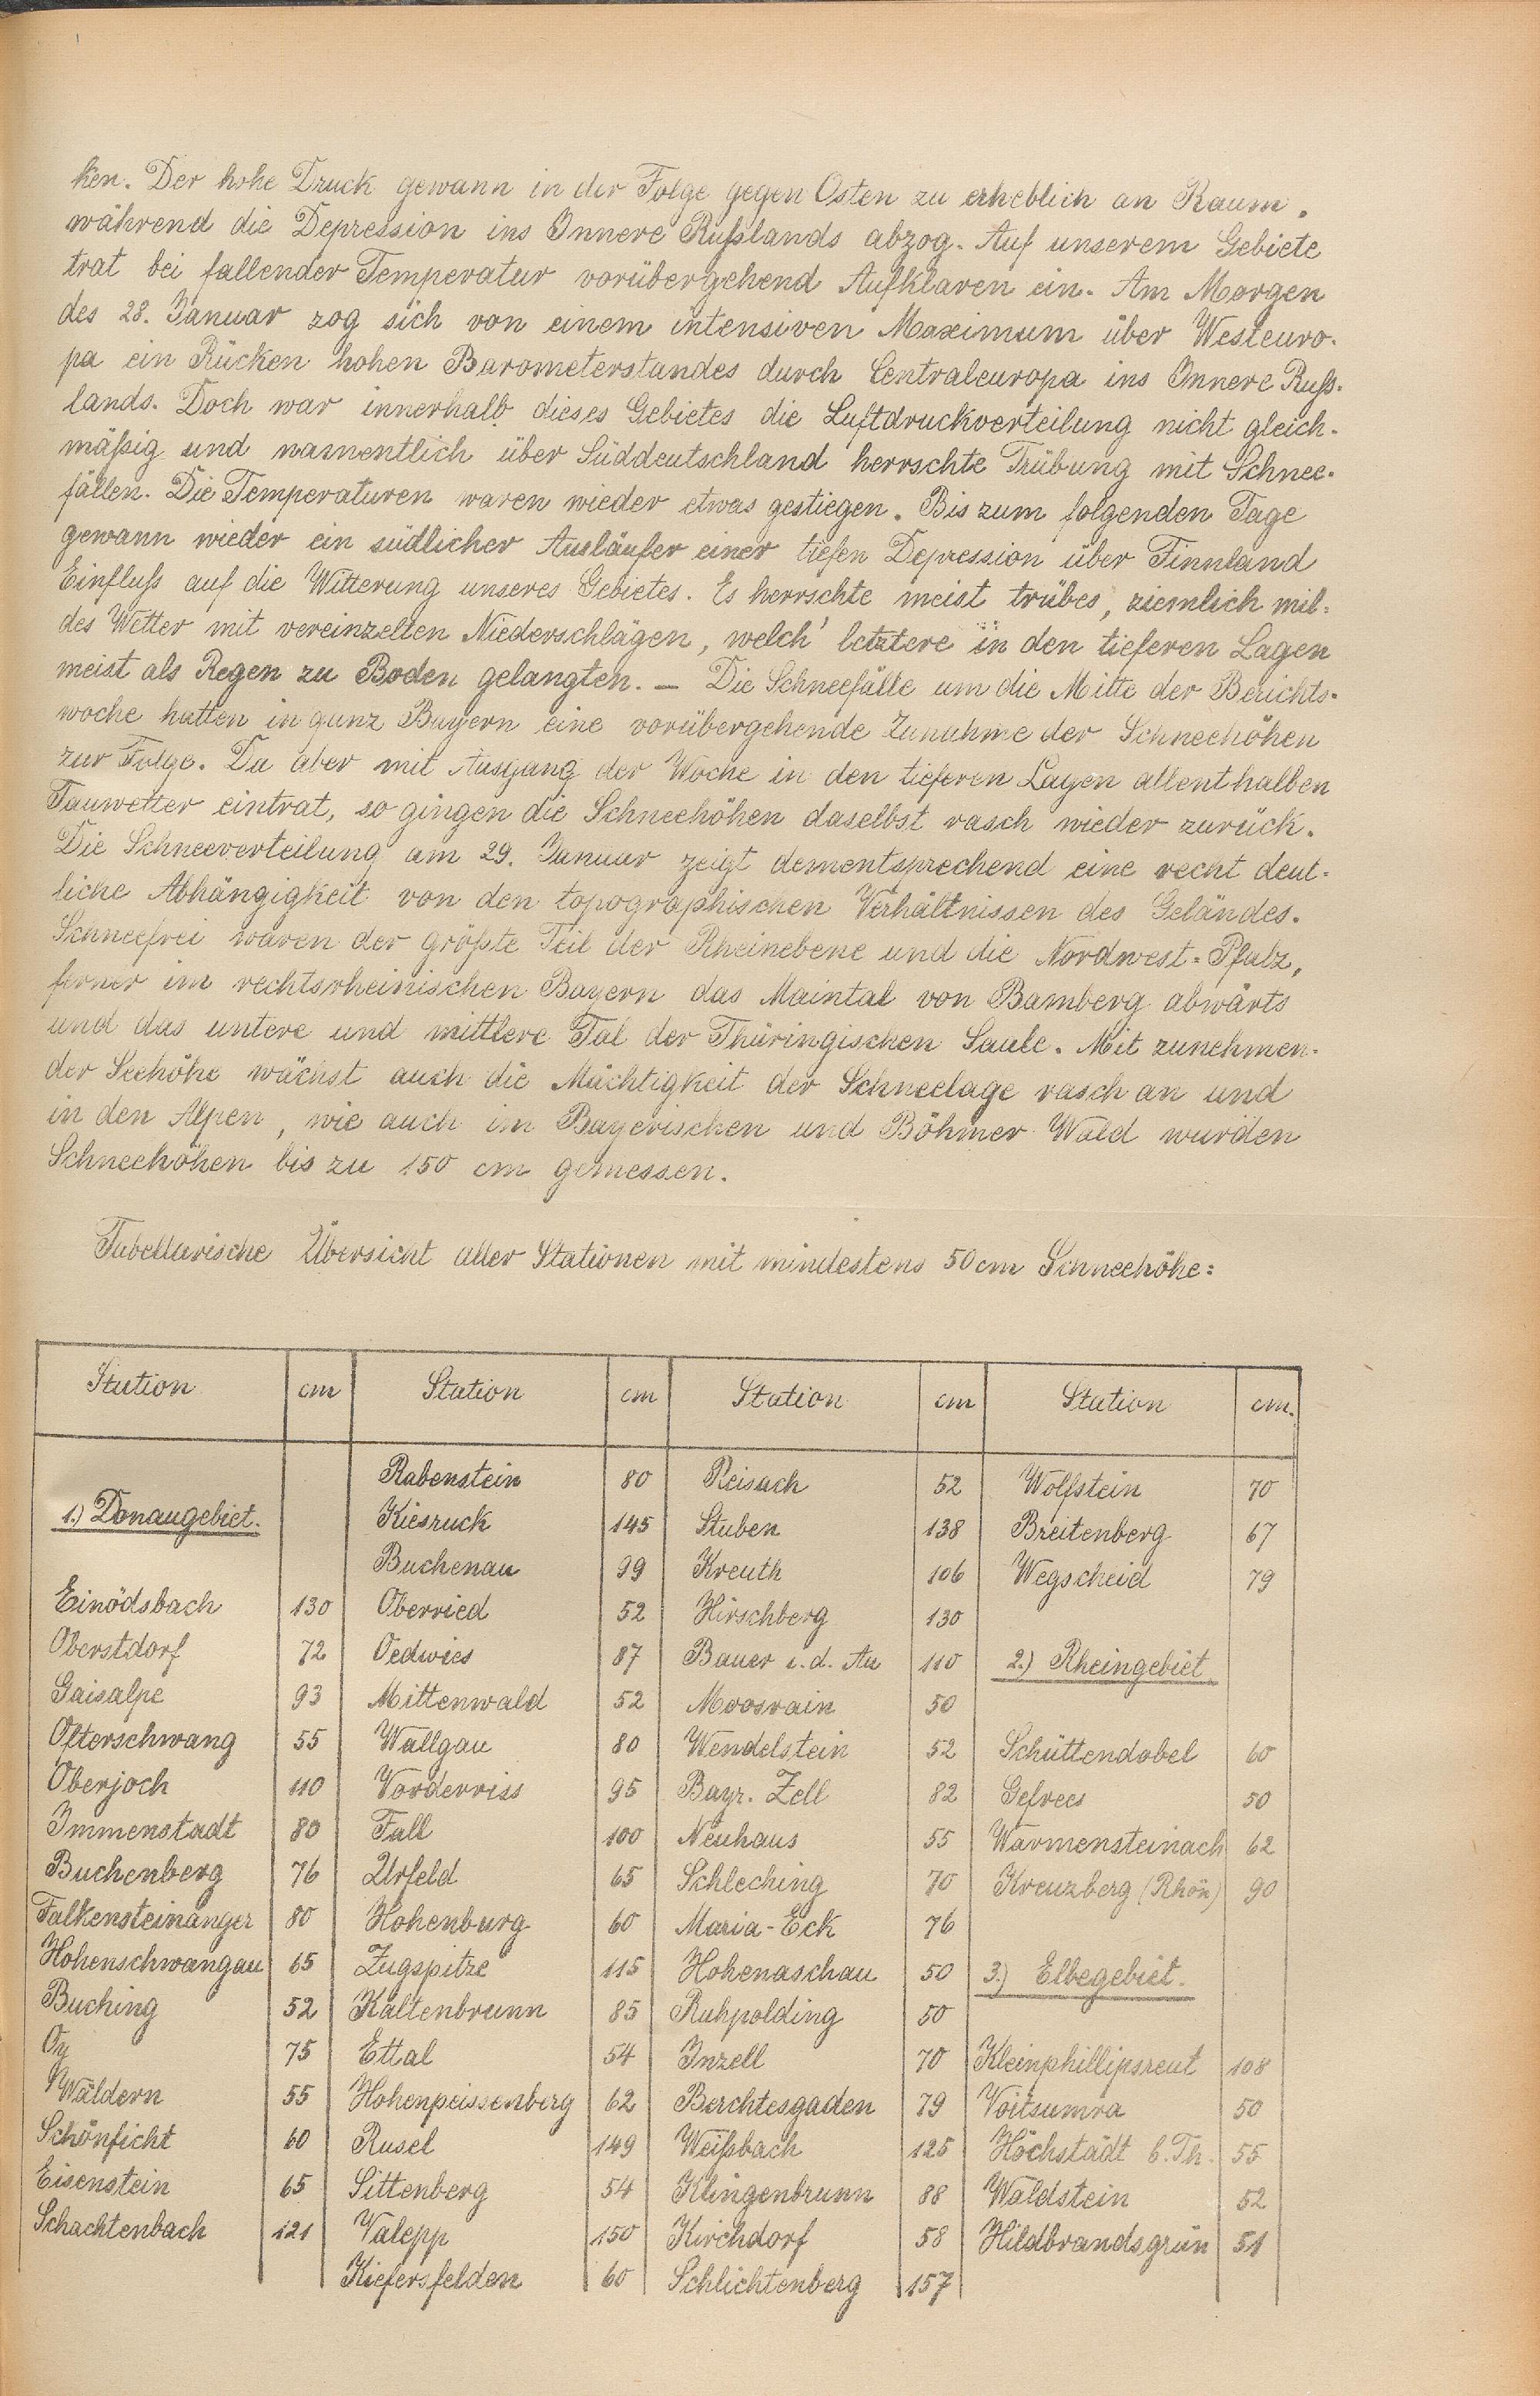 ken. Der hohe Druck gewann in der Folge gegen Osten zu erheblich an Raum,
während die Depression ins Innere Rußlands abzog. Auf unserem Gebiete
trat bei fallender Temperatur vorübergehend Aufklaren ein. Am Morgen
des 28. Januar zog sich von einem intensiven Maximum über Westeuro-
pa ein Rücken hohen Barometerstandes durch Centraleuropa ins Innere Ruß-
lands. Doch war innerhalb dieses Gebietes die Luftdruckverteilung nicht gleich-
mäßig und namentlich über Süddeutschland herrschte Trübung mit Schnee-
fällen. Die Temperaturen waren wieder etwas gestiegen. Bis zum folgenden Tage
gewann wieder ein südlicher Ausläufer einer tiefen Depression über Finnland
Einfluß auf die Witterung unseres Gebietes. Es herrschte meist trübes, ziemlich mil-
des Wetter mit vereinzelten Niederschlägen, welch' letztere in den tieferen Lagen
meist als Regen zu Boden gelangten. — Die Schneefälle um die Mitte der Berichts-
woche hatten in ganz Bayern eine vorübergehende Zunahme der Schneehöhen
zur Folge. Da aber mit Ausgang der Woche in den tieferen Lagen allenthalben
Tauwetter eintrat, so gingen die Schneehöhen daselbst rasch wieder zurück.
Die Schneeverteilung am 29. Januar zeigt dementsprechend eine recht deut-
liche Abhängigkeit von den topographischen Verhältnissen des Geländes.
Schneefrei waren der größte Teil der Rheinebene und die Nordwest-Pfalz,
ferner im rechtsrheinischen Bayern das Maintal von Bamberg abwärts
und das untere und mittlere Tal der Thüringischen Saale. Mit zunehmen-
der Seehöhe wächst auch die Mächtigkeit der Schneelage rasch an und
in den Alpen, wie auch im Bayerischen und Böhmer Wald wurden
Schneehöhen bis zu 150 cm gemessen.
Tabellarische Übersicht aller Stationen mit mindestens 50 cm Schneehöhe:
Station cm Station cm Station cm Station cm.
Rabenstein 80 Reisach 52 Wolfstein 70
1.) Donaugebiet. Kiesruck 145 Stuben 138 Breitenberg 67
Buchenau 99 Kreuth 106 Wegscheid 79
Einödsbach 130 Oberried 52 Hirschberg 130
Oberstdorf 72 Oedwies 87 Bauer i. d. Au 110 2.) Rheingebiet
Gaisalpe 93 Mittenwald 52 Moosrain 50
Ofterschwang 55 Wallgau 80 Wendelstein 52 Schüttendobel 60
Oberjoch 110 Vorderriss 95 Bayr. Zell 82 Gefrees 50
Immenstadt 80 Fall 100 Neuhaus 55 Warmensteinach 62
Buchenberg 76 Urfeld 65 Schleching 70 Kreuzberg (Rhön) 90
Falkensteinanger 80 Hohenburg 60 Maria-Eck 76
Hohenschwangau 65 Zugspitze 115 Hohenaschau 50 3.) Elbegebiet.
Buching 52 Kaltenbrunn 85 Ruhpolding 50
Oy 75 Ettal 54 Inzell 70 Kleinphillipsreut 108
Wäldern 55 Hohenpeissenberg 62 Berchtesgaden 79 Voitsumra 50
Schönficht 60 Rusel 149 Weißbach 125 Höchstädt b. Th. 55
Eisenstein 65 Sittenberg 54 Klingenbrunn 88 Waldstein 52
Schachtenbach 121 Valepp 150 Kirchdorf 58 Hildbrandsgrün 51
Kiefersfelden 60 Schlichtenberg 157